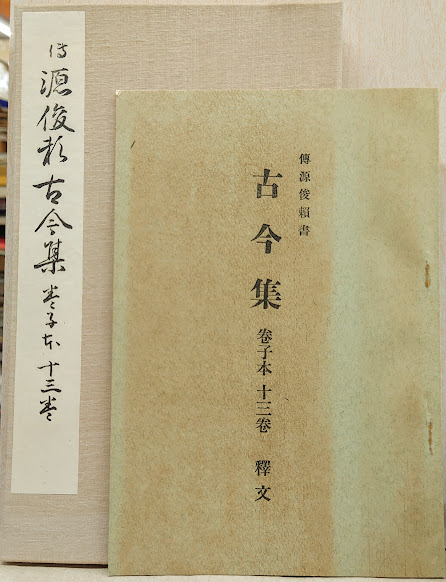 傳源俊頼古今集 巻子本 十三巻
傳源俊賴書
古今集 卷子本 十三卷 釋文